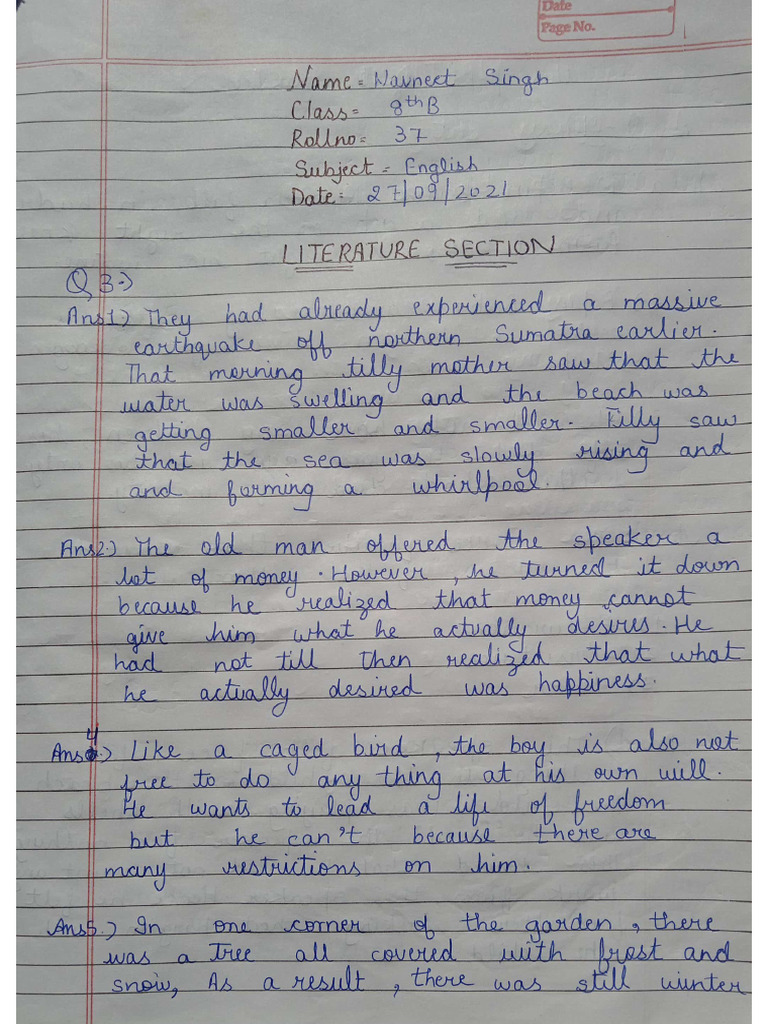 Date
Page No.
Name = Navneet Singh
Class = 8th B
Rollno = 37
Subject = English
Date: 27/09/2021
LITERATURE SECTION
Q 3.)
Ans1.) They had already experienced a massive
earthquake off northern Sumatra earlier.
That morning tilly mother saw that the
water was swelling and the beach was
getting smaller and smaller. Tilly saw
that the sea was slowly rising and
and forming a whirlpool.
Ans2.) The old man offered the speaker a
lot of money. However, he turned it down
because he realized that money cannot
give him what he actually desires. He
had not till then realized that what
he actually desired was happiness.
Ans4.) Like a caged bird, the boy is also not
free to do any thing at his own will.
He wants to lead a life of freedom
but he can't because there are
many restrictions on him.
Ans5.) In one corner of the garden, there
was a Tree all covered with frost and
snow, As a result, there was still winter